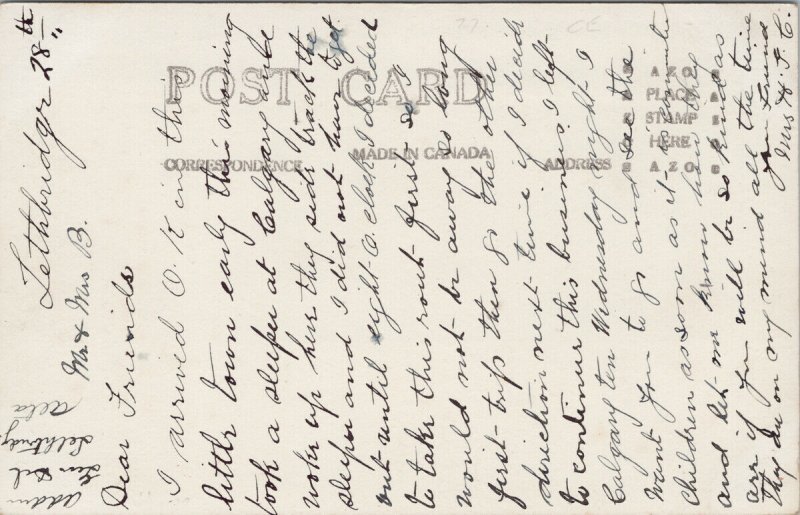 Lethbridge 28th
Mr & Mrs B.
Dear Friends
I arrived O.K in this
little town early this morning
took a sleeper at Calgary and
woke up here they side track the
sleeper and I did not have to get
out until eight O.clock I decided
to take this rout first so I
would not be away so long
first trip then go the other
direction next time if I decide
to continue this business. I left
Calgary ten Wednesday night I
want you to go and see the
children as soon as it is convenient
and let me know how they
are if you will be so kind as
they are on my mind all the time
your friend
Mrs H. F. C.
Address
Gen Del
Lethbridge
Alta
POST CARD
CORRESPONDENCE
MADE IN CANADA
ADDRESS
AZO
PLACE
STAMP
HERE
AZO